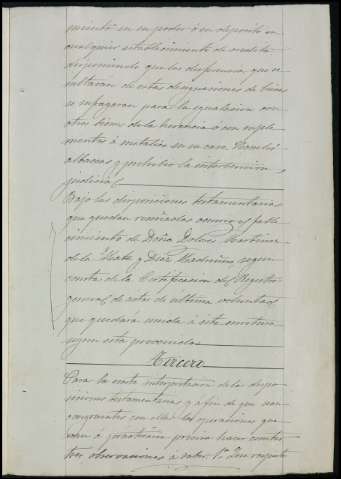 miento en su poder ó en depósito en
cualquier establecimiento de crédito
disponiendo que las diferencias que re
sultaran de estas adjudicaciones de bienes
se repagaran para la igualacion con
otros bienes de la herencia ó con suple
mentos á metálico en su caso. Nombró
albaceas y prohibió la intervencion
judicial
Bajo las disposiciones testamentarias
que quedan reseñadas ocurrió el falle
cimiento de Doña Dolores Martinez
de la y Diaz segun
consta de la Certificacion del Registro
general de actos de última voluntad
que quedará unida á esta escritura
segun esta prevenido
Tercero
Para la recta interpretacion de las dispo
siciones testamentarias y á fin de que sean
congruentes con ellas las operaciones que
van á practicarse precisa hacer constar
tres observaciones á saber: 1ª Que respecto